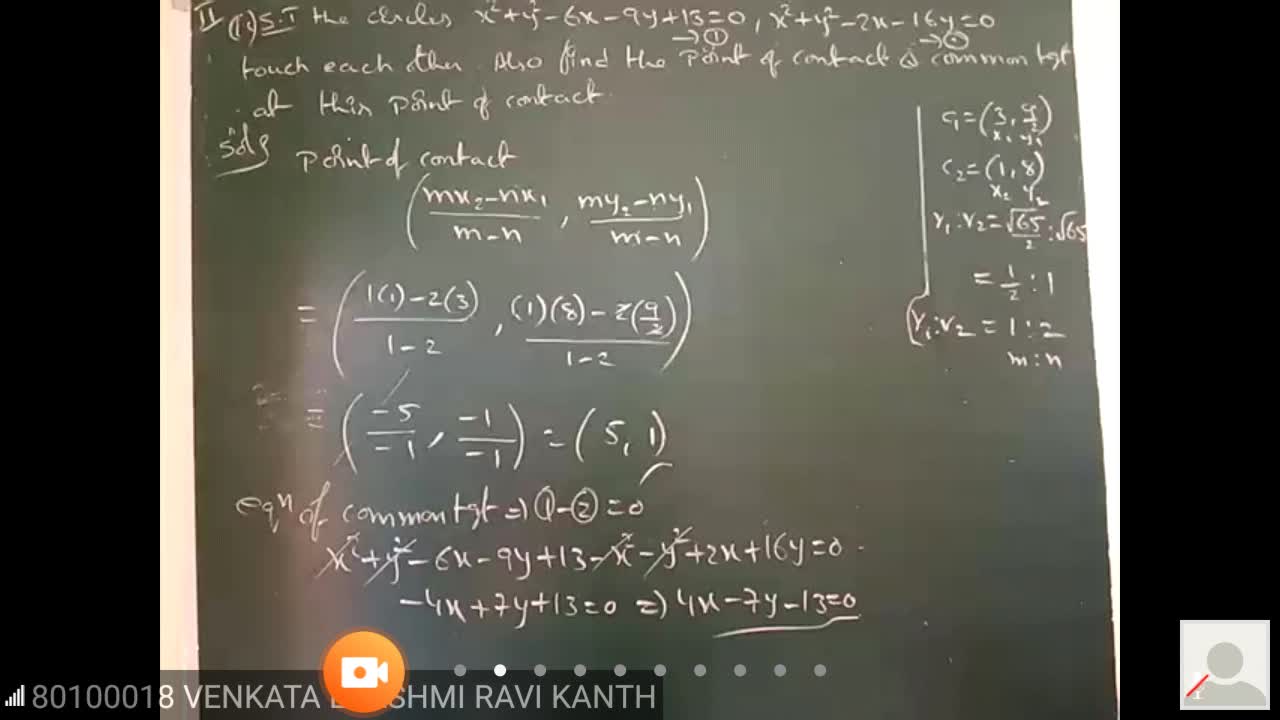 II (ii) S.T the circles x²+y²-6x-9y+13=0, x²+y²-2x-16y=0
→①
→②
touch each other. Also find the point of contact & common tgt
at this point of contact.
Sol:
point of contact
(mx₂-nx₁/m-n, my₂-ny₁/m-n)
= (1(1)-2(3)/1-2, (1)(8)-2(9/2)/1-2)
= (-5/-1, -1/-1) = (5, 1)
eqn of common tgt ⇒ ①-② = 0
x²+y²-6x-9y+13-x²-y²+2x+16y=0
-4x+7y+13=0 ⇒ 4x-7y-13=0
c₁=(3, 9/2)
x₁ y₁
c₂=(1, 8)
x₂ y₂
r₁:r₂=√65/2:√65
= 1/2 : 1
r₁:r₂ = 1:2
m:n
80100018 VENKATA L SHMI RAVI KANTH